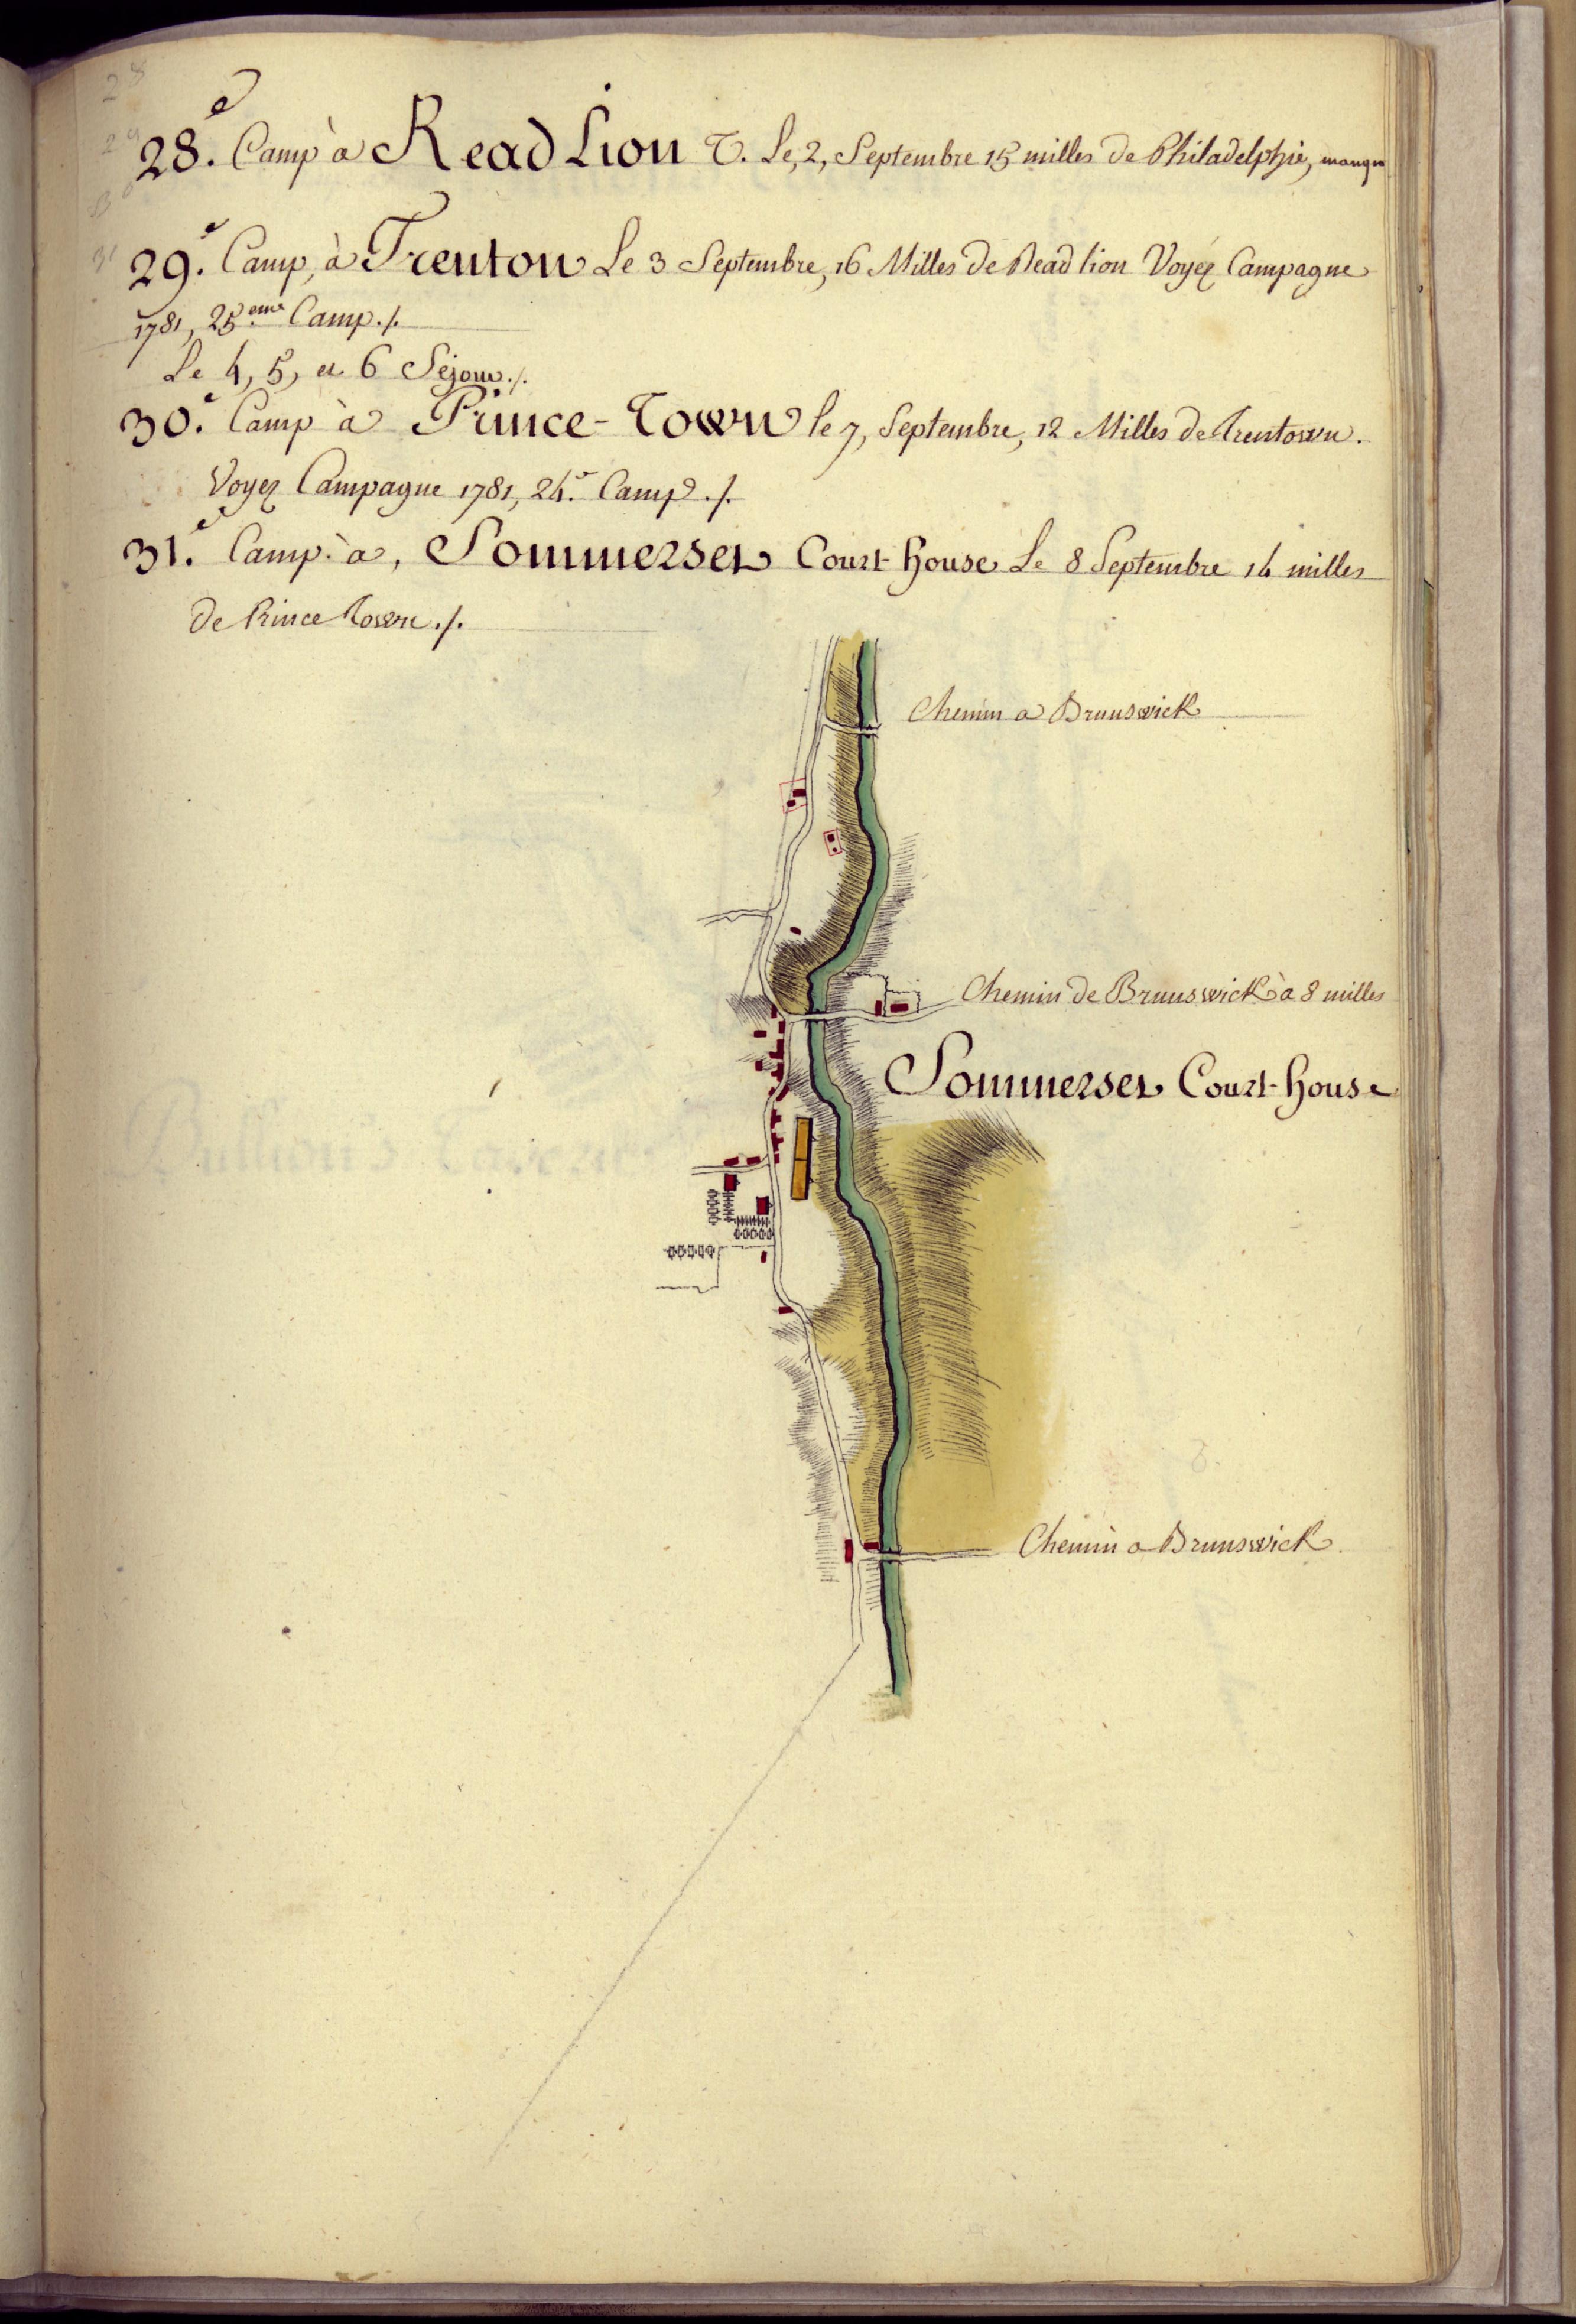 28.e Camp à Read Lion T. Le, 2, Septembre 15 milles de Philadelphie, manque
29.e Camp, à Trenton Le 3 Septembre, 16 Milles de Read lion Voyéz Campagne
1781, 25.eme Camp./.
Le 4, 5, et 6 Séjour./.
30.e Camp à Prince-Town le 7, Septembre, 12 Milles de Trentown.
Voyez Campagne 1781, 24.e Camp./.
31.e Camp à, Sommerset Court-house Le 8 Septembre 14 milles
de Prince Town./.
Chemin a Brunswick
Chemin de Brunswick à 8 milles
Sommerset Court-house
Chemin a Brunswick
28
29
30
31